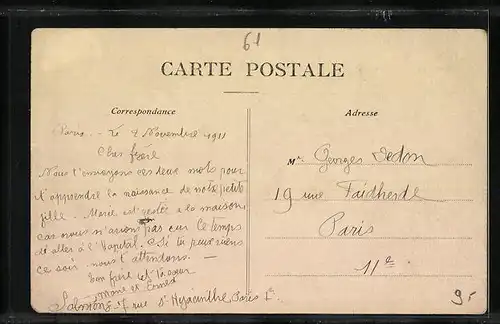 61
CARTE POSTALE
Correspondance
Paris - le 2 Novembre 1911
Cher frère
Nous t'envoyons ces deux mots pour
t'apprendre la naissance de notre petite
fille. Marie est restée a la maison
car nous n'avions pas eur le temps
d'aller à l'Hapital. Si tu peux viens
ce soir nous t'attendons —
Ton frère et ta sœur
Marie et Ernest
7 rue St Hyacinthe Paris 1e
Adresse
Mr Georges
19 rue Faidherbe
Paris
11e